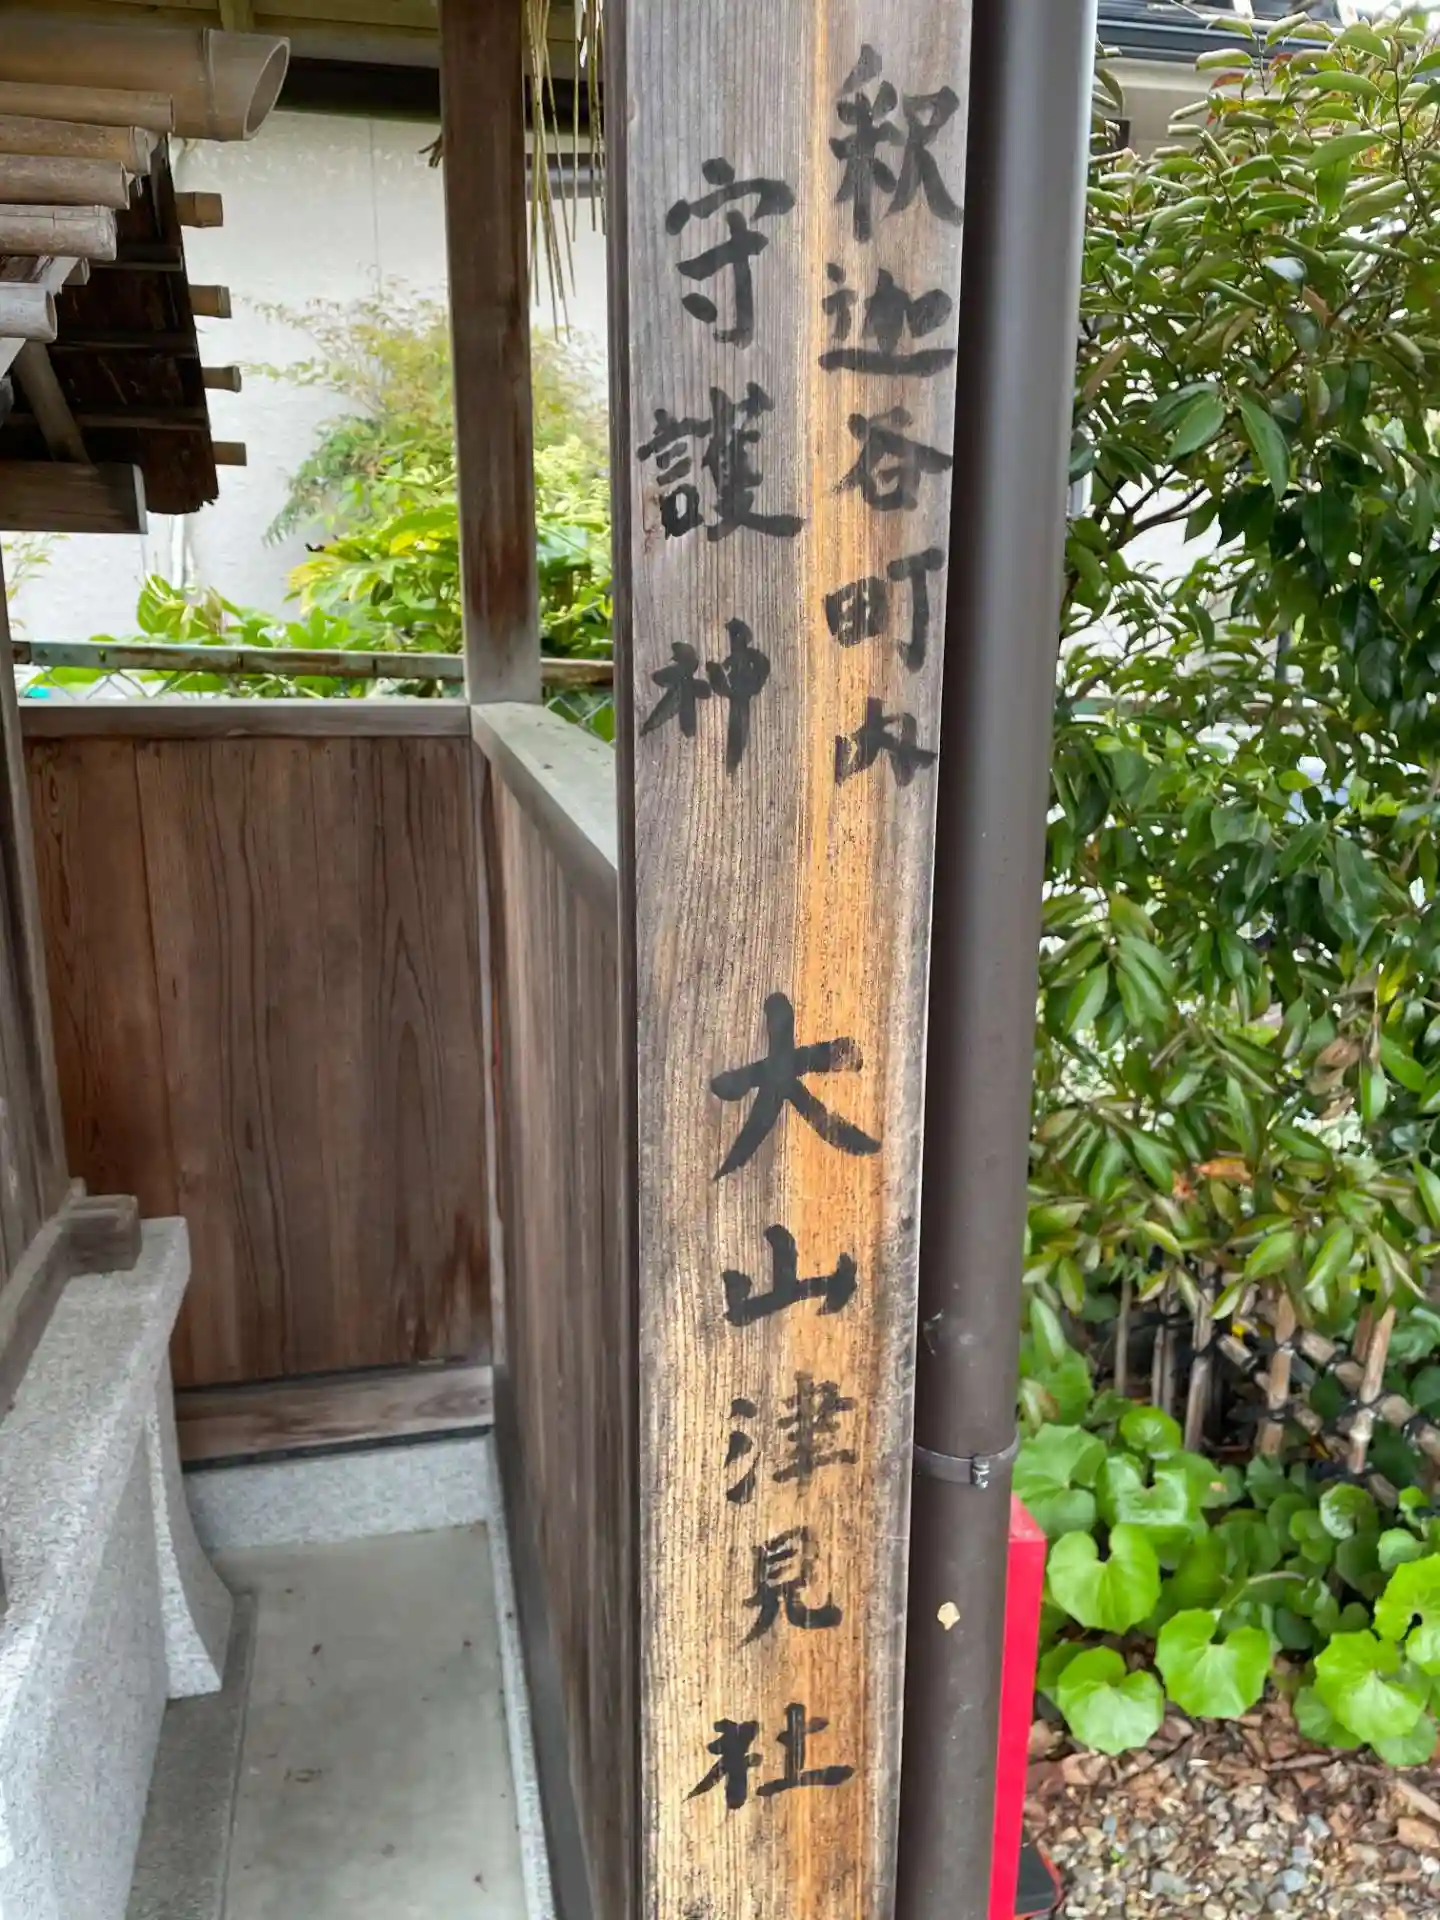 釈迦谷町内
守護神
大山津見社